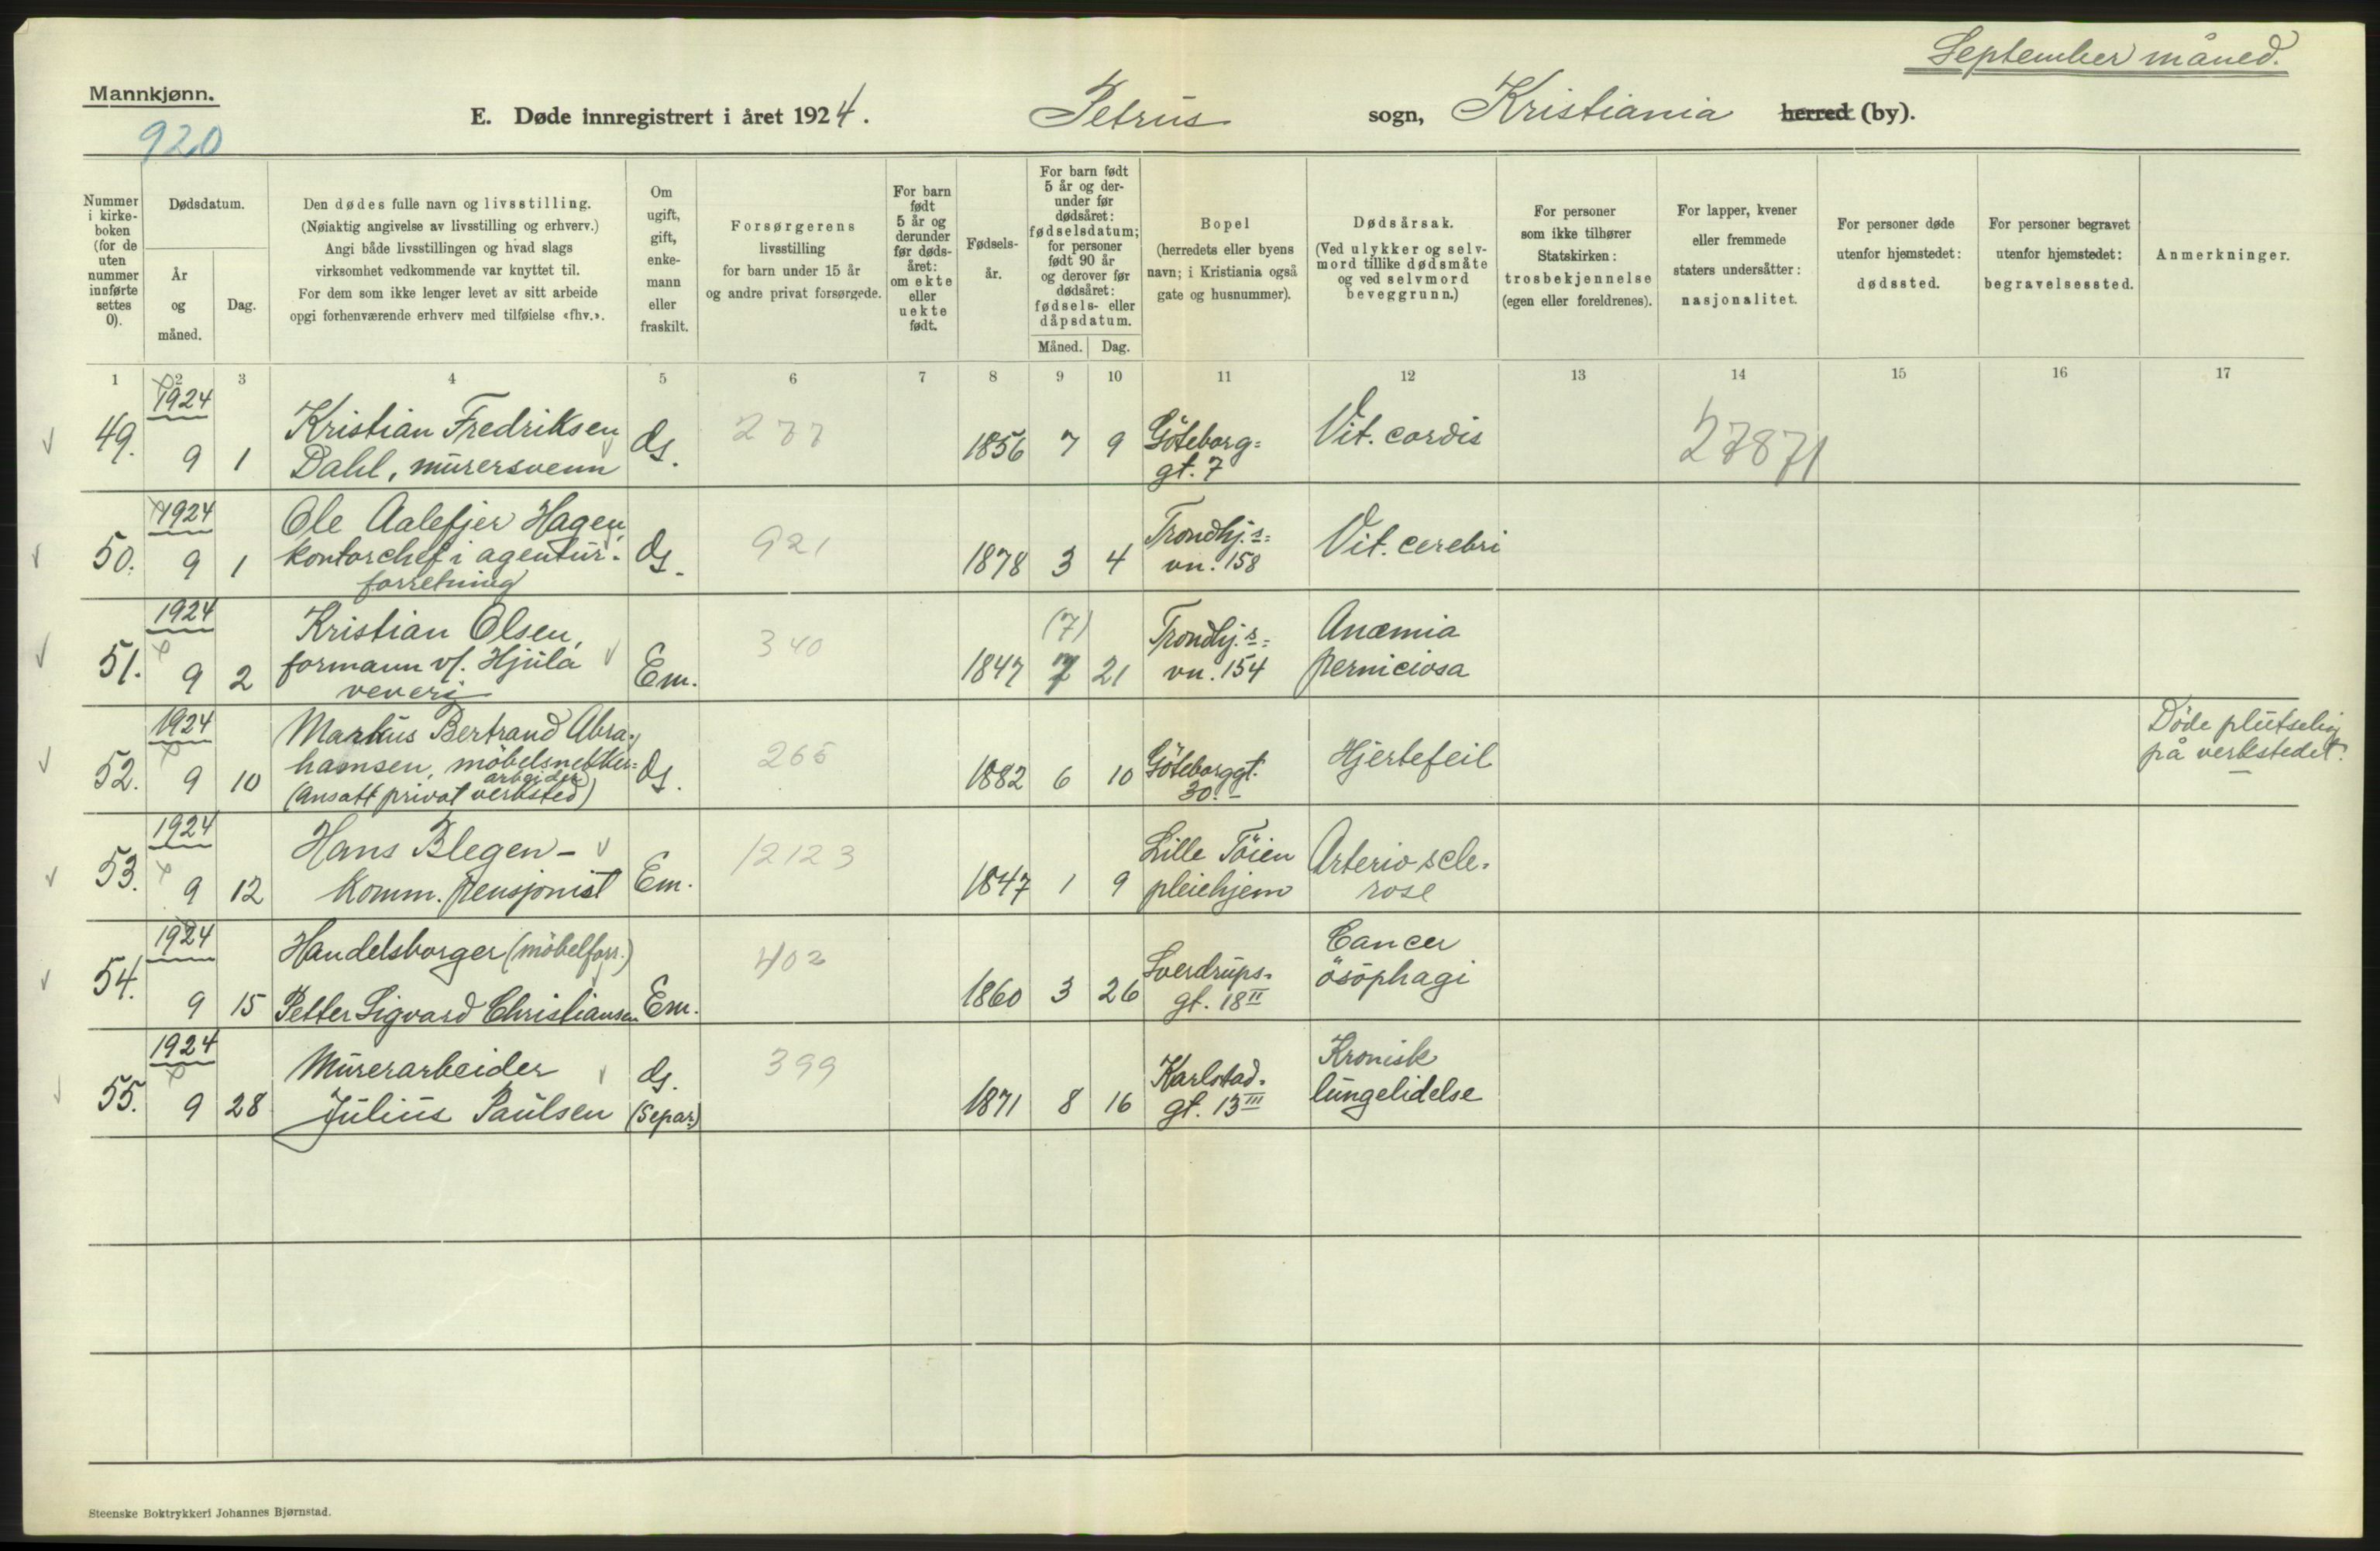 September måned.
Mannkjønn.
920
E. Døde innregistrert i året 1924. Petrus sogn, Kristiania herred (by).
Nummer i kirke-boken (for de uten nummer innførte settes 0).
Dødsdatum.
År og måned.
Dag.
Den dødes fulle navn og livsstilling.
(Nøiaktig angivelse av livsstilling og erhverv.)
Angi både livsstillingen og hvad slags
virksomhet vedkommende var knyttet til.
For dem som ikke lenger levet av sitt arbeide
opgi forhenværende erhverv med tilføielse «fhv.».
Om ugift, gift, enke-mann eller fraskilt.
Forsørgerens
livsstilling
for barn under 15 år
og andre privat forsørgede.
For barn født 5 år og derunder før døds-året: om ekte eller uekte født.
Fødsels-år.
For barn født 5 år og der-under før dødsåret: fødselsdatum; for personer født 90 år og derover før dødsåret: fødsels- eller dåpsdatum.
Måned. Dag.
Bopel
(herredets eller byens
navn; i Kristiania også
gate og husnummer).
Dødsårsak.
(Ved ulykker og selv-
mord tillike dødsmåte
og ved selvmord
beveggrunn.)
For personer
som ikke tilhører
Statskirken:
trosbekjennelse
(egen eller foreldrenes).
For lapper, kvener
eller fremmede
staters undersåtter:
nasjonalitet.
For personer døde
utenfor hjemstedet:
dødssted.
For personer begravet
utenfor hjemstedet:
begravelsessted.
Anmerkninger.
1 2 3 4 5 6 7 8 9 10 11 12 13 14 15 16 17
1924
49. 9 1 Kristian Fredriksen
Dahl, murersvenn
G. 277 1856 7 9 Göteborg=
gt. 7
Vit. cordis 27871
1924
50. 9 1 Ole Aalefjer Hagen,
kontorchef i agentur-
forretning
G. 921 1878 3 4 Trondhj.s=
vn. 158
Vit. cerebri
1924
51. 9 2 Kristian Olsen,
formann v/. Hjula
veveri
Em. 340 1847 (7) 7 21 Trondhj.s=
vn. 154
Anæmia
perniciosa
1924
52. 9 10 Markus Bertrand Abra-
hamsen, möbelsnekker=
arbeider
(Ansatt privat verksted)
G. 265 1882 6 10 Göteborggt.
30.
Hjertefeil
Døde plutselig
på verkstedet.
1924
53. 9 12 Hans Blegen -
Komm. pensjonist
Em. 12123 1847 1 9 Lille Töien
pleiehjem
Arterioscle-
rose
1924
54. 9 15 Handelsborger (möbelforr.)
Petter Sigvard Christiansen
Em. 402 1860 3 26 Sverdrups-
gt. 18 II
Cancer
ösöphagi
1924
55. 9 28 Murerarbeider
Julius Paulsen
G.
(Separ.)
399 1871 8 16 Karlstad-
gt. 13 III
Kronisk
lungelidelse
Steenske Boktrykkeri Johannes Bjørnstad.